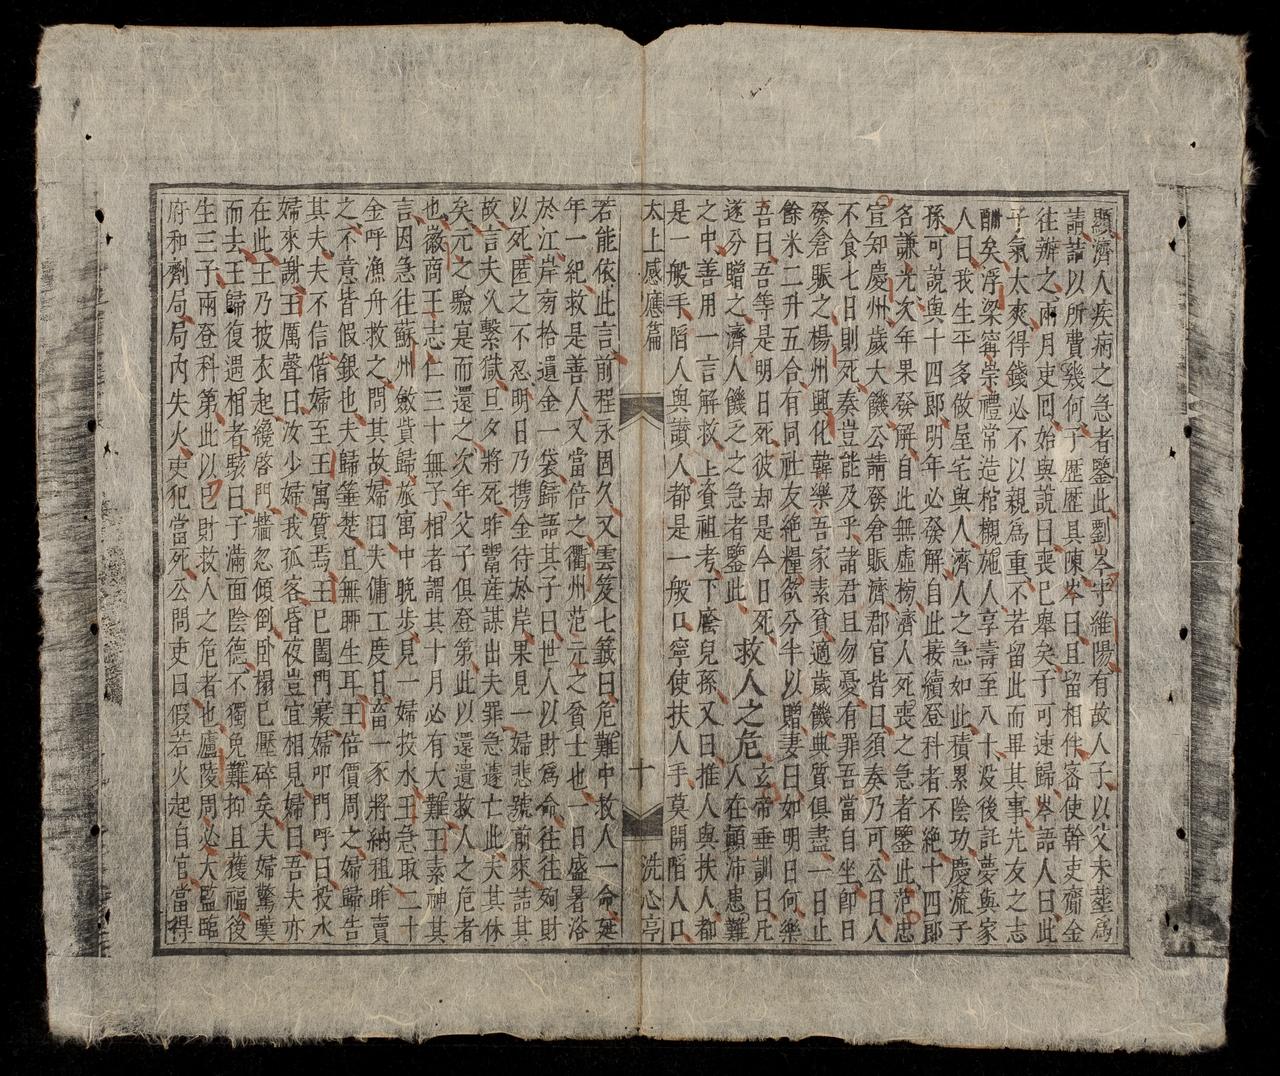 顯濟人疾病之急者鑒此劉岑守維陽有故人子以父未塟爲
請詰以所費幾何子歷歷具陳岑曰且留相伴密使幹吏齎金
往辦之兩月吏回始與說曰喪已舉矣子可速歸岑語人曰此
子氣太爽得錢必不以親爲重不若留此而畢其事先友之志
酬矣浮梁寗崇禮常造棺櫬施人享壽至八十没後託夢與家
人曰我生平多做屋宅與人濟人之急如此積累陰功慶流子
孫可說與十四郎明年必發解自此接續登科者不絶十四郎
名謙光次年果發解自此無虛榜濟人死喪之急者鑒此范忠
宣知慶州歲大饑公請發倉賑濟郡官皆曰須奏乃可公曰人
不食七日則死奏豈能及乎諸君且勿憂有罪吾當自坐卽日
發倉賑之楊州興化韓樂吾家素貧適歲饑典質俱盡一日止
餘米二升五合有同社友絶糧欲分半以贈妻曰如明日何樂
吾曰吾等是明日死彼却是今日死
遂分贈之濟人饑乏之急者鑒此　救人之危　玄帝垂訓曰凡人在顛沛患難
之中善用一言解救上資祖考下廕兒孫又曰推人與扶人都
是一般手陷人與讚人都是一般口寧使扶人手莫開陷人口
太上感應篇　十　洗心亭
若能依此言前程永固久又雲笈七籤曰危難中救人一命延
年一紀救是善人又當倍之衢州范元之貧士也一日盛暑浴
於江岸南拾遺金一袋歸語其子曰世人以財爲命往往殉財
以死匿之不忍明日乃攜金待於岸果見一婦悲號前來詰其
故言夫久繫獄旦夕將死昨鬻産謀出夫罪急遽亡此夫其休
矣元之驗寔而還之次年父子俱登第此以還遺救人之危者
也徽商王志仁三十無子相者謂其十月必有大難王素神其
言因急往蘇州斂貲歸旅寓中晚步見一婦投水王急取二十
金呼漁舟救之問其故婦曰夫傭工度日畜一豕將納租昨賣
之不意皆假銀也夫歸箠楚且無聊生耳王倍價周之婦歸告
其夫夫不信偕婦至王寓質焉王已闔門寢婦叩門呼曰投水
婦來謝王厲聲曰汝少婦我孤客昏夜豈宜相見婦曰吾夫亦
在此王乃披衣起纔啓門牆忽傾倒卧榻已壓碎矣夫婦驚嘆
而去王歸復遇相者駭曰子滿面陰德不獨免難抑且獲福後
生三子兩登科第此以已財救人之危者也廬陵周必大監臨
府和劑局局內失火吏犯當死公問吏曰假若火起自官當得